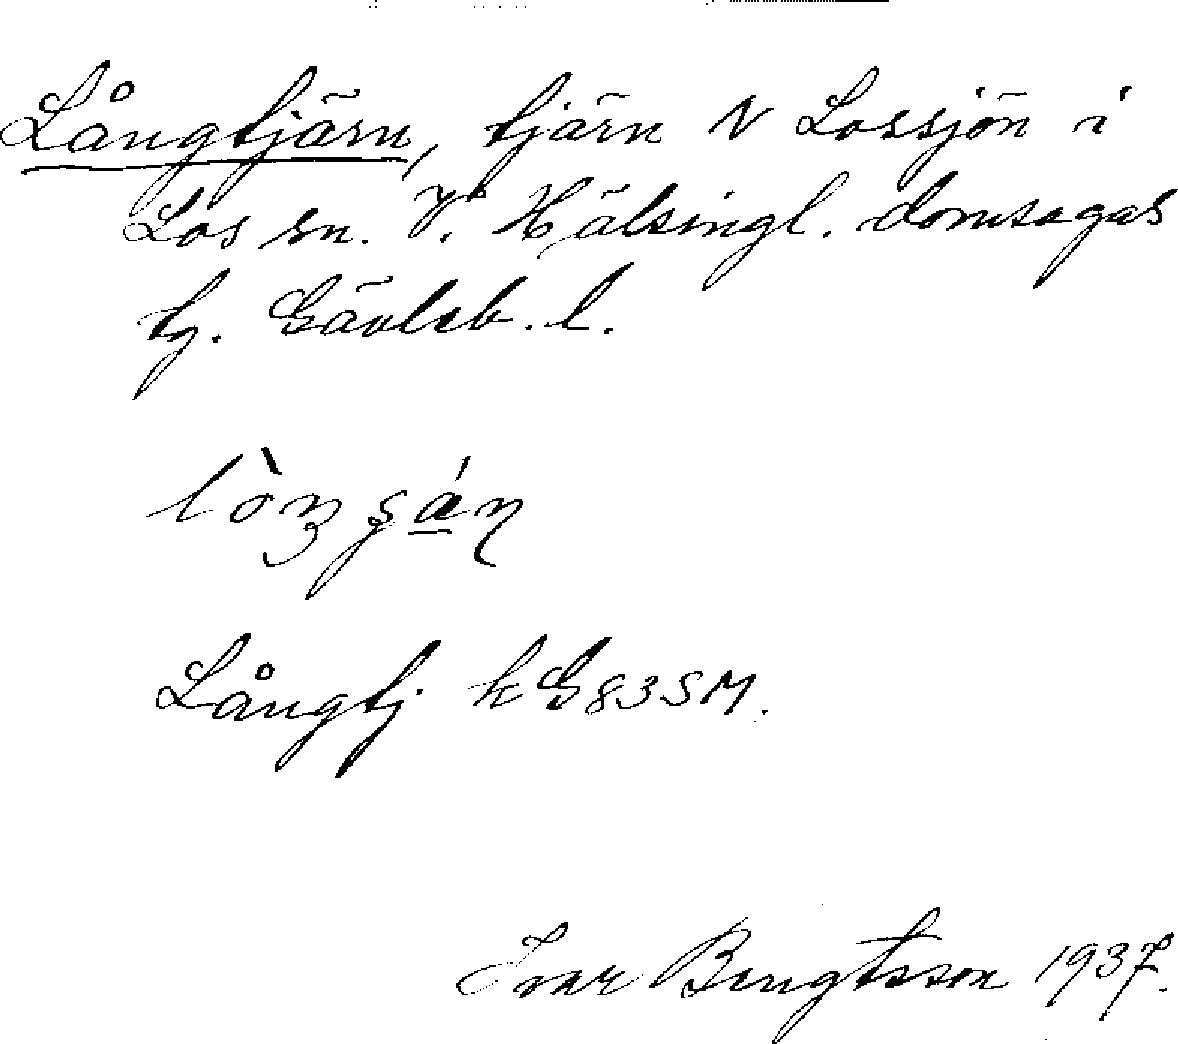 Långtjärn, tjärn N Lossjön i
Los sn. V. Hälsingl. domsagas
tg. Gävleb. l.
Långtj kG83SM.
Ivar Bengtsson 1937.